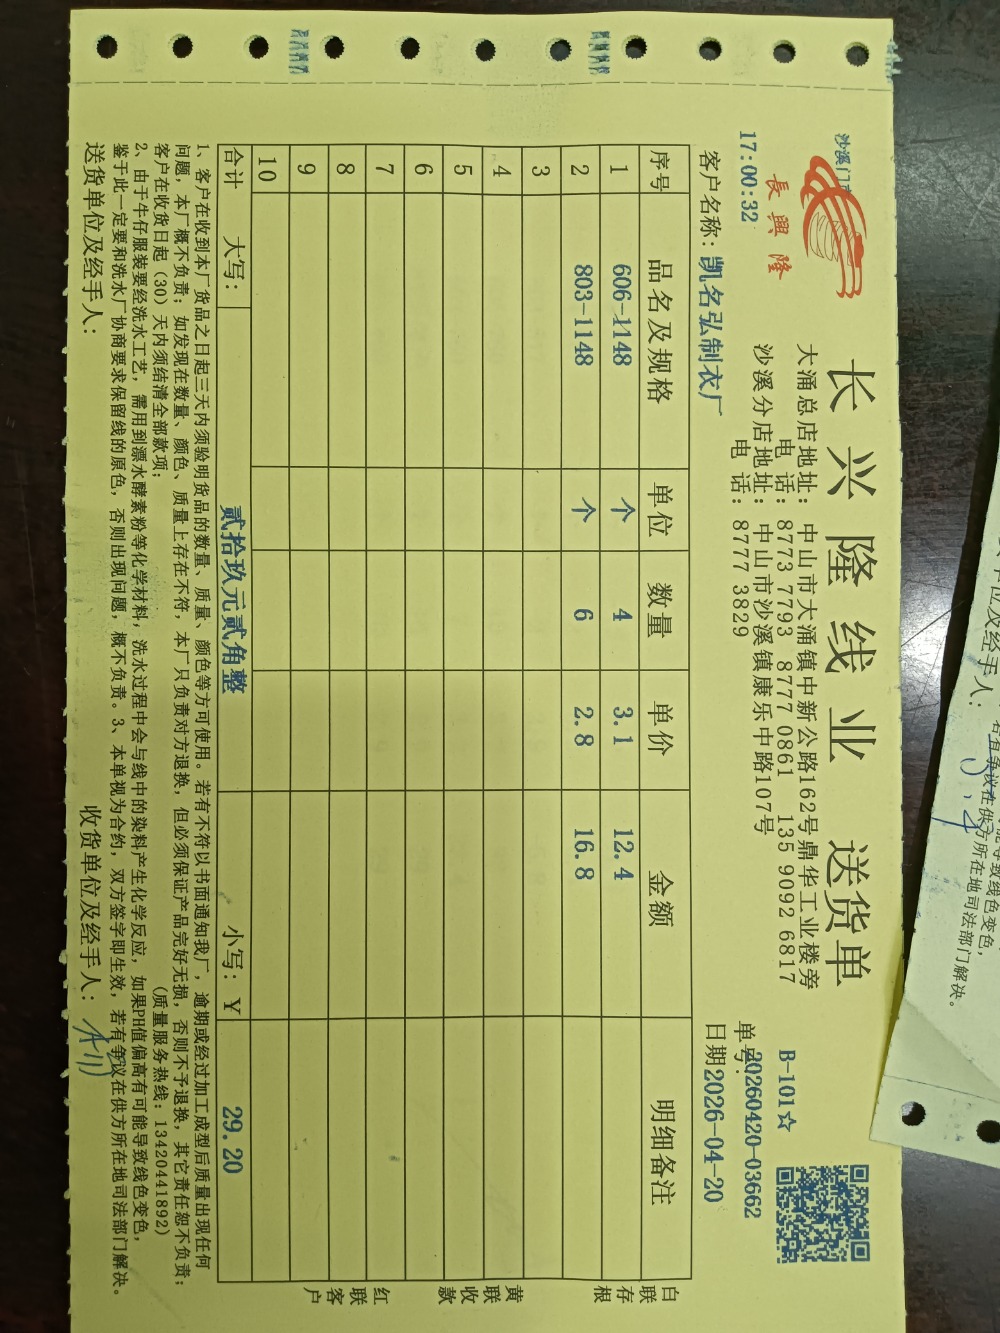 長興隆
长兴隆线业 送货单
沙溪门市
17:00:32
大涌总店地址：中山市大涌镇中新公路162号鼎华工业楼旁
电 话：8773 7793 8777 0861 135 9092 6817
沙溪分店地址：中山市沙溪镇康乐中路107号
电 话：8777 3829
B-101☆
单号：20260420-03662
客户名称：凯名弘制衣厂 日期2026-04-20
序号 品名及规格 单位 数量 单价 金额 明细备注
1 606-1148 个 4 3.1 12.4
2 803-1148 个 6 2.8 16.8
3
4
5
6
7
8
9
10
合计 大写：贰拾玖元贰角整 小写：￥ 29.20
白联存根
黄联收款
红联客户
1、客户在收到本厂货品之日起三天内须验明货品的数量、质量、颜色等方可使用。若有不符以书面通知我厂，逾期或经过加工成型后质量出现任何
问题，本厂概不负责；如发现在数量、颜色、质量上存在不符，本厂只负责对方退换，但必须保证产品完好无损，否则不予退换，其它责任恕不负责；
客户在收货日起（30）天内须结清全部款项； （质量服务热线：13420441892）
2、由于牛仔服装要经洗水工艺，需用到漂水酵素粉等化学材料，洗水过程中会与线中的染料产生化学反应，如果PH值偏高有可能导致线色变色，
鉴于此一定要和洗水厂协商要求保留线的原色，否则出现问题，概不负责。3、本单视为合约，双方签字即生效，若有争议在供方所在地司法部门解决。
送货单位及经手人： 收货单位及经手人：
导致线色变色，
若有争议在供方所在地司法部门解决。
位及经手人：